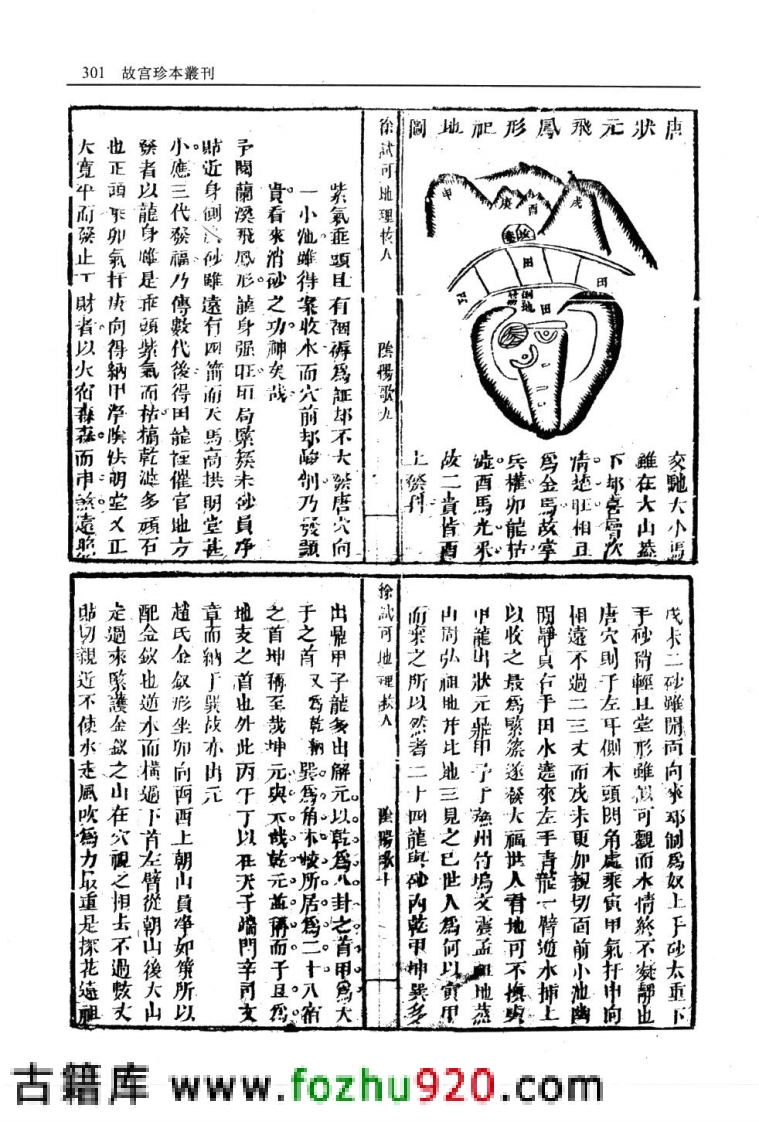 301 故宫珍本叢刊
唐狀元飛鳳形祀地圖
甲
庚
酉
戌
案
田
田
田
交馳大小馬
雖在大山藤
下却喜層次
情楚旺相且
為金馬故掌
兵權卯龍枯
嘘酉馬光釆
故二貴皆酉
上發科
徐試可地理 人
陰陽歌九
紫氣垂頭且有 為証却不大發唐穴向
一小池雖得案收水而穴前却 削乃發顯
貴看來消砂之功神矣哉
予閱蘭溪飛鳳形龍身强旺垣局緊 未砂員净
貼近身側 砂雖遠有四箭而天馬高拱明堂甚
小應三代發福乃傳數代後得田龍 催官地方
發者以龍身雖是垂頭紫氣而枯槁乾 多頑石
也正頭 卯氣扦庚向得納甲净 明堂又正
大寬平而發止丁財者以火宿 而申 遠照
戌未二砂雖開面向來却制為奴上手砂太重下
手砂稍輕且堂形雖似可觀而水情終不凝静也
唐穴則于左耳側木頭閃角處乘寅甲氣扦申向
相遠不過二三丈而戌未更加親切面前小池幽
閒静貞右手田水遶來左手青龍一臂逆水揷上
以收之最為緊簇遂發大福世人看地可不慎與
甲龍出狀元鼎甲予于 州竹塢文震孟祖地蕪
山周弘祖地并比地三見之已世人為何以寅甲
而棄之所以然者二十四龍與砂内乾甲坤巽多
徐試可地理 人
陰陽歌十
出鼎甲子龍多出解元以乾為八卦之首甲為大
于之首又為乾納巽為角木蛟所居為二十八宿
之首坤稱至哉坤元與大哉乾元並稱而子且為
地支之首也外此丙午丁以在天子端門辛司文
章而納于巽故亦出元
趙氏金釵形坐卯向酉酉上朝山員净如 所以
配金釵也逆水而橫過下首左臂從朝山後大山
走過來緊護金釵之山在穴視之相去不過數丈
貼切親近不使水走風吹為力最重是探花遠祖
古籍库 www.fozhu920.com